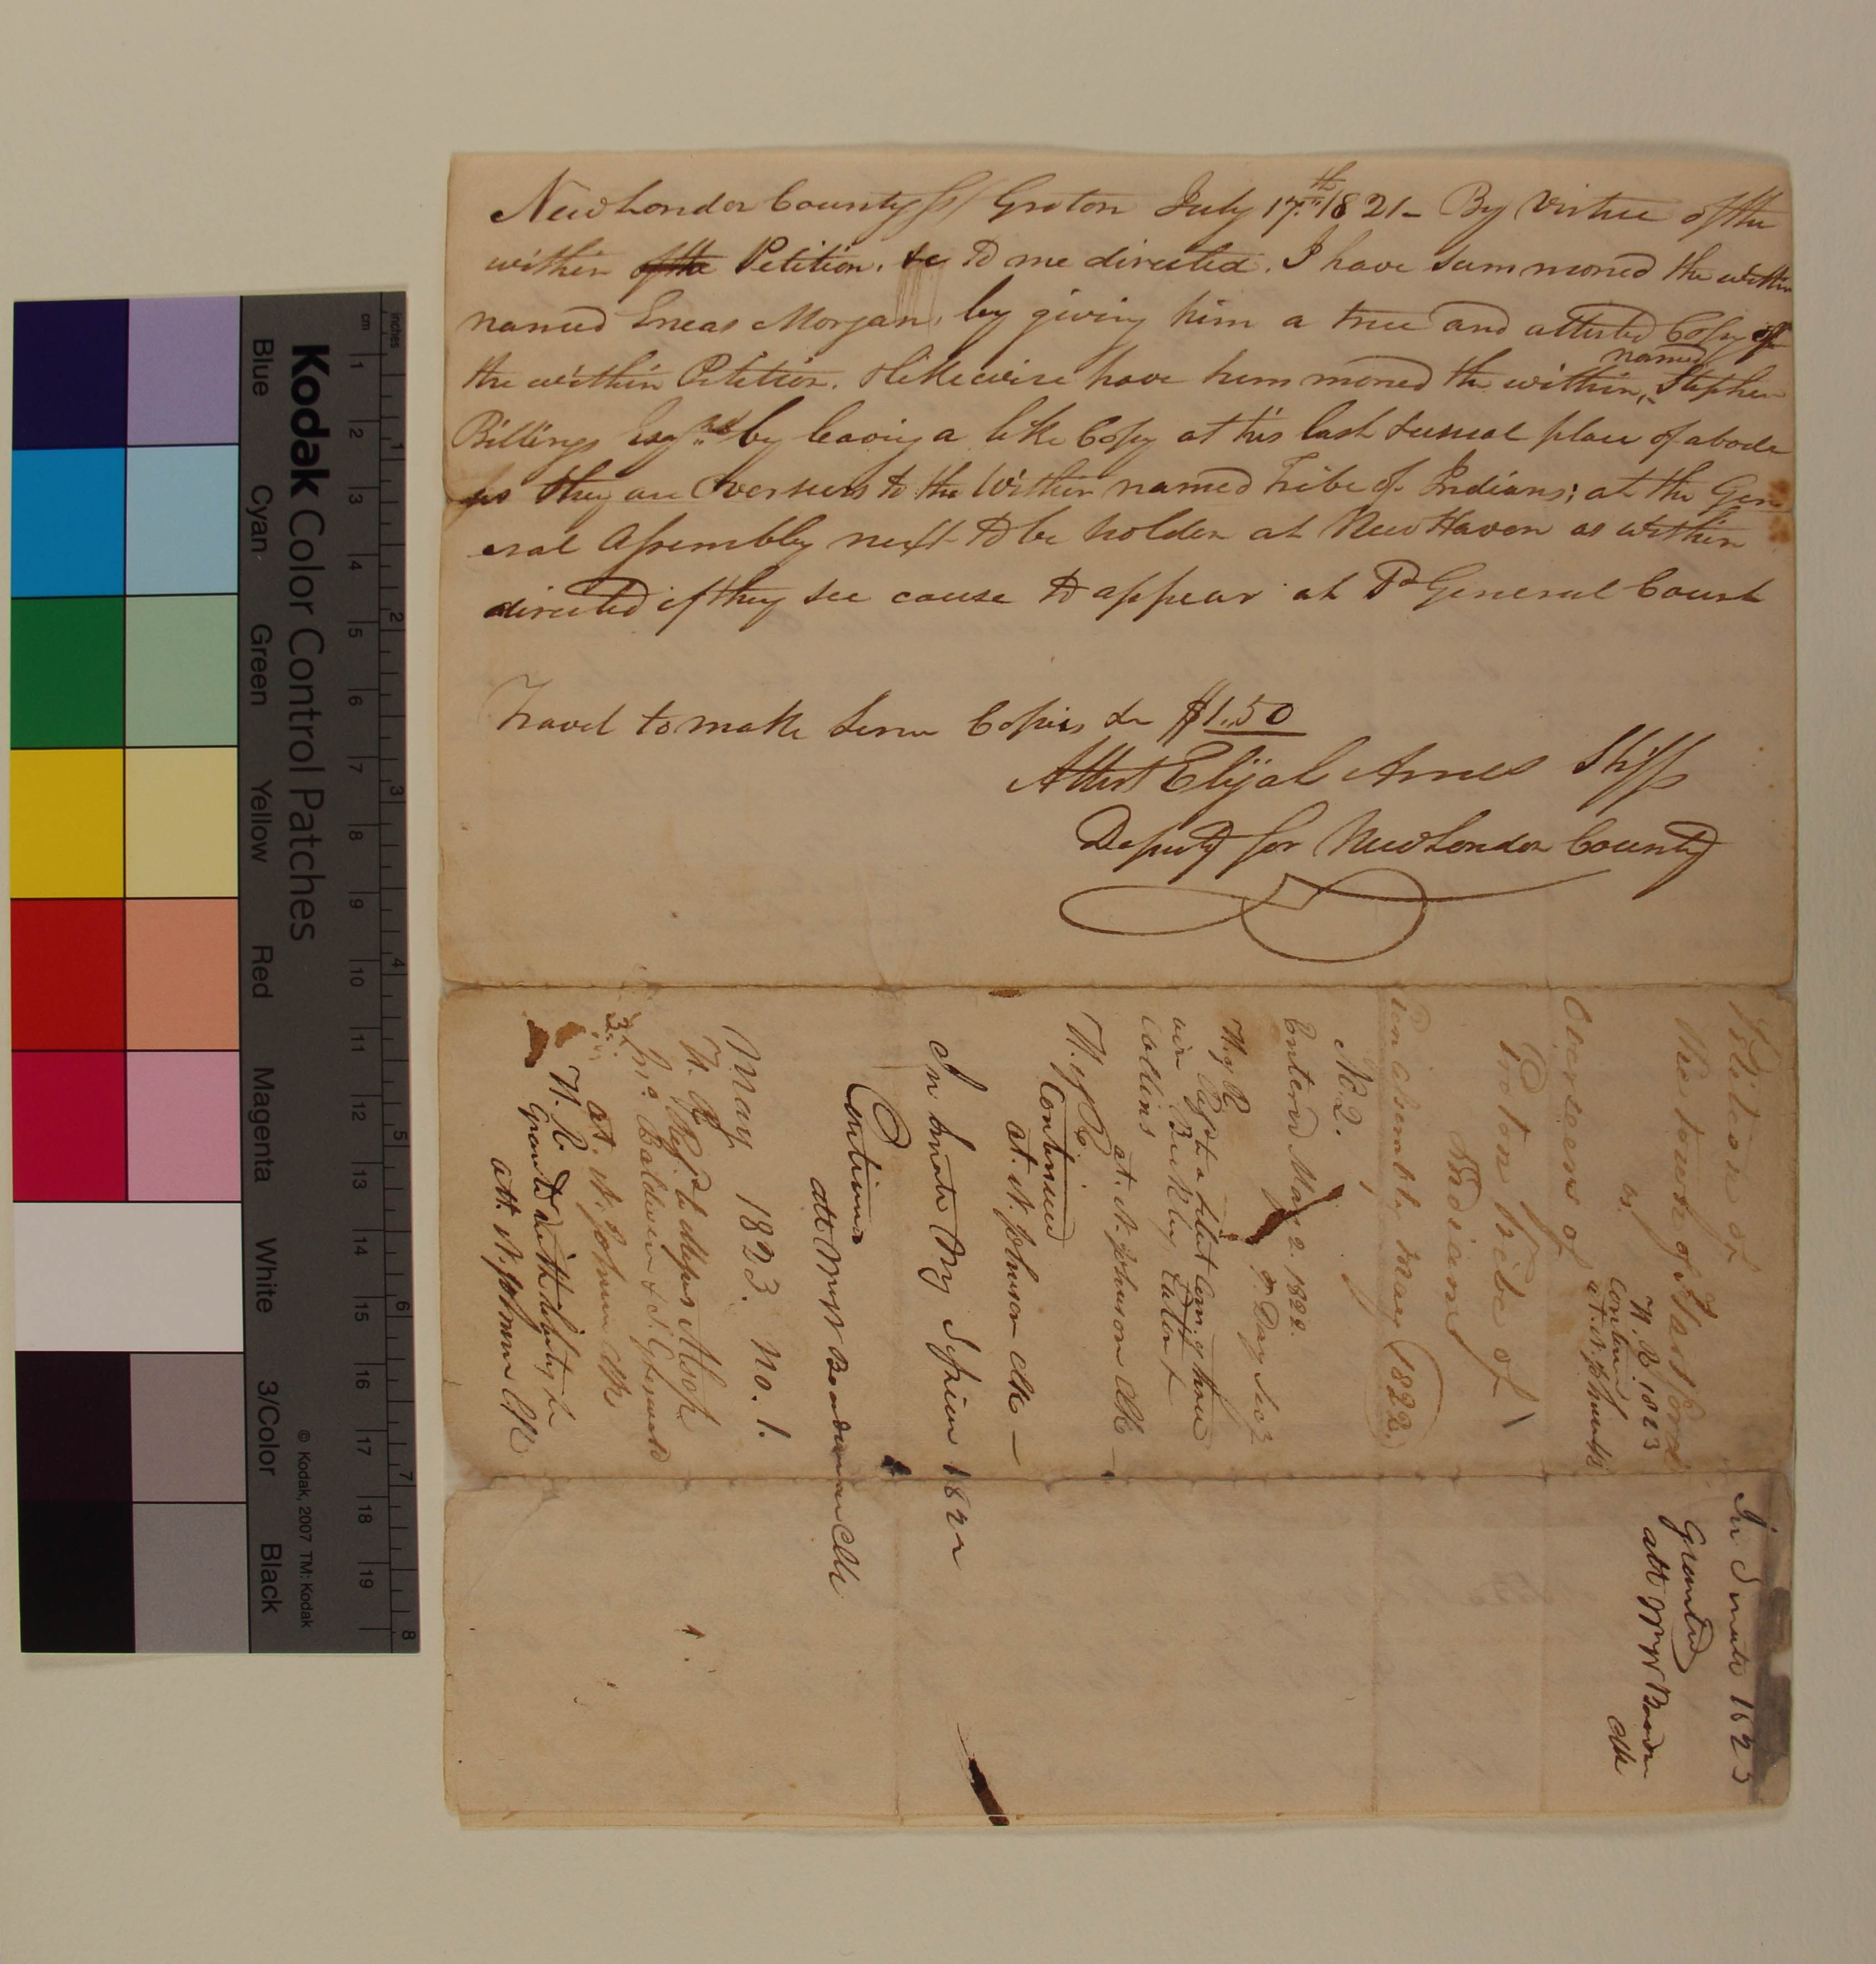 New London County ss/ Groton July 17th. 1821 - By Virtue of the
within of the Petition, &c to me directed. I have summoned the within
named Eneas Morgan, by giving him a true and attested Copy of
the within Petition. & likewise have summoned the within, named Stephen
Billings Esqr. by leaving a like Copy at his last & usual place of abode
as they are Overseers to the Within named Tribe of Indians; at the Gen
eral Assembly next to be holden at New Haven as within
directed if they see cause to appear at sd General Court
Travel to make Serve Copies &c $1.50
Attest Elijah Ames Shff
Deputy for New London County
Petition of
The town of Hartford
vs.
Overseers of
Groton tribe of
Indians
Gen assembly May 1822.
H. R. 1823
Continued
at. N. Johnson Clk
No. 2.
Entered May 2. 1822.
T. Day Secy
H. of R.
Collins
at. N. Johnson Clk
H. of R.
Continued
at. N. Johnson Clk
In Senate May Session 1822
Continued
att Wm W Boardman Clk
May 1823. No. 1.
H. R.
Baldwin & S. Griswold
at. N. Johnson Clk
H. R.
Granted with liberty &c
att. N. Johnson Clk
In Senate 1823
Granted
att Wm W Boardman
Clk
Kodak Color Control Patches
© Kodak, 2007 TM: Kodak
Blue
Cyan
Green
Yellow
Red
Magenta
White
3/Color
Black
inches
cm
1
2
3
4
5
6
7
8
9
10
11
12
13
14
15
16
17
18
19
1
2
3
4
5
6
7
8